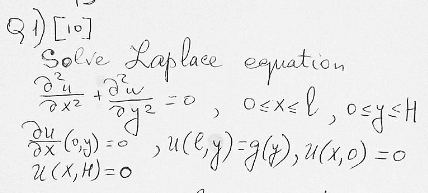 Q1) [10]
Solve Laplace equation
∂²u/∂x² + ∂²u/∂y² = 0 , 0≤x≤l , 0≤y≤H
∂u/∂x (0,y) = 0 , u(l,y) = g(y), u(x,0) = 0
u(x,H) = 0